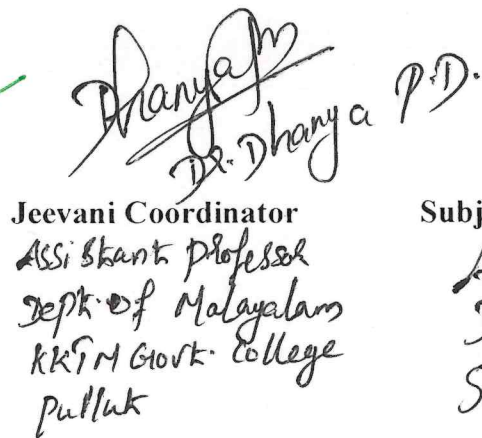 Dhanya
Dr. Dhanya P.D.
Jeevani Coordinator
Assistant Professor
Dept. of Malayalam
KKTM Govt. College
Pullut
Subj